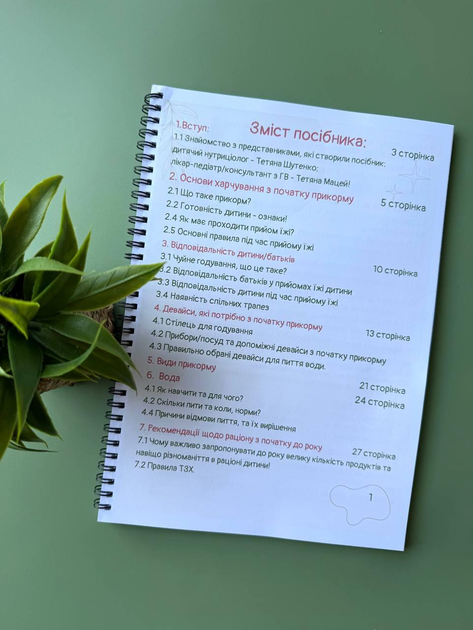 Зміст посібника:
1.Вступ:
3 сторінка
1.1 Знайомство з представниками, які створили посібник:
дитячий нутриціолог - Тетяна Шутенко;
лікар-педіатр/консультант з ГВ - Тетяна Мацей!
2. Основи харчування з початку прикорму
5 сторінка
2.1 Що таке прикорм?
2.2 Готовність дитини - ознаки!
2.4 Як має проходити прийом їжі?
2.5 Основні правила під час прийому їжі
3. Відповідальність дитини/батьків
10 сторінка
3.1 Чуйне годування, що це таке?
3.2 Відповідальність батьків у прийомах їжі дитини
3.3 Відповідальність дитини під час прийому їжі
3.4 Наявність спільних трапез
4. Девайси, які потрібно з початку прикорму
13 сторінка
4.1 Стілець для годування
4.2 Прибори/посуд та допоміжні девайси з початку прикорму
4.3 Правильно обрані девайси для пиття води.
5. Види прикорму
21 сторінка
6. Вода
24 сторінка
4.1 Як навчити та для чого?
4.2 Скільки пити та коли, норми?
4.4 Причини відмови пиття, та їх вирішення
7. Рекомендації щодо раціону з початку до року
27 сторінка
7.1 Чому важливо запропонувати до року велику кількість продуктів та
навіщо різноманіття в раціоні дитини!
7.2 Правила ТЗХ.
1